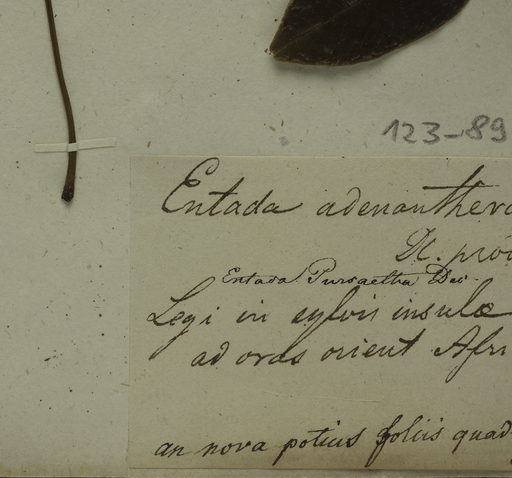 123-89
Entada adenanthera
Dc. pro
Entada Pursaetha Dec.
Legi in sylvis insulæ
ad oras orient Afri
an nova potius foliis quad